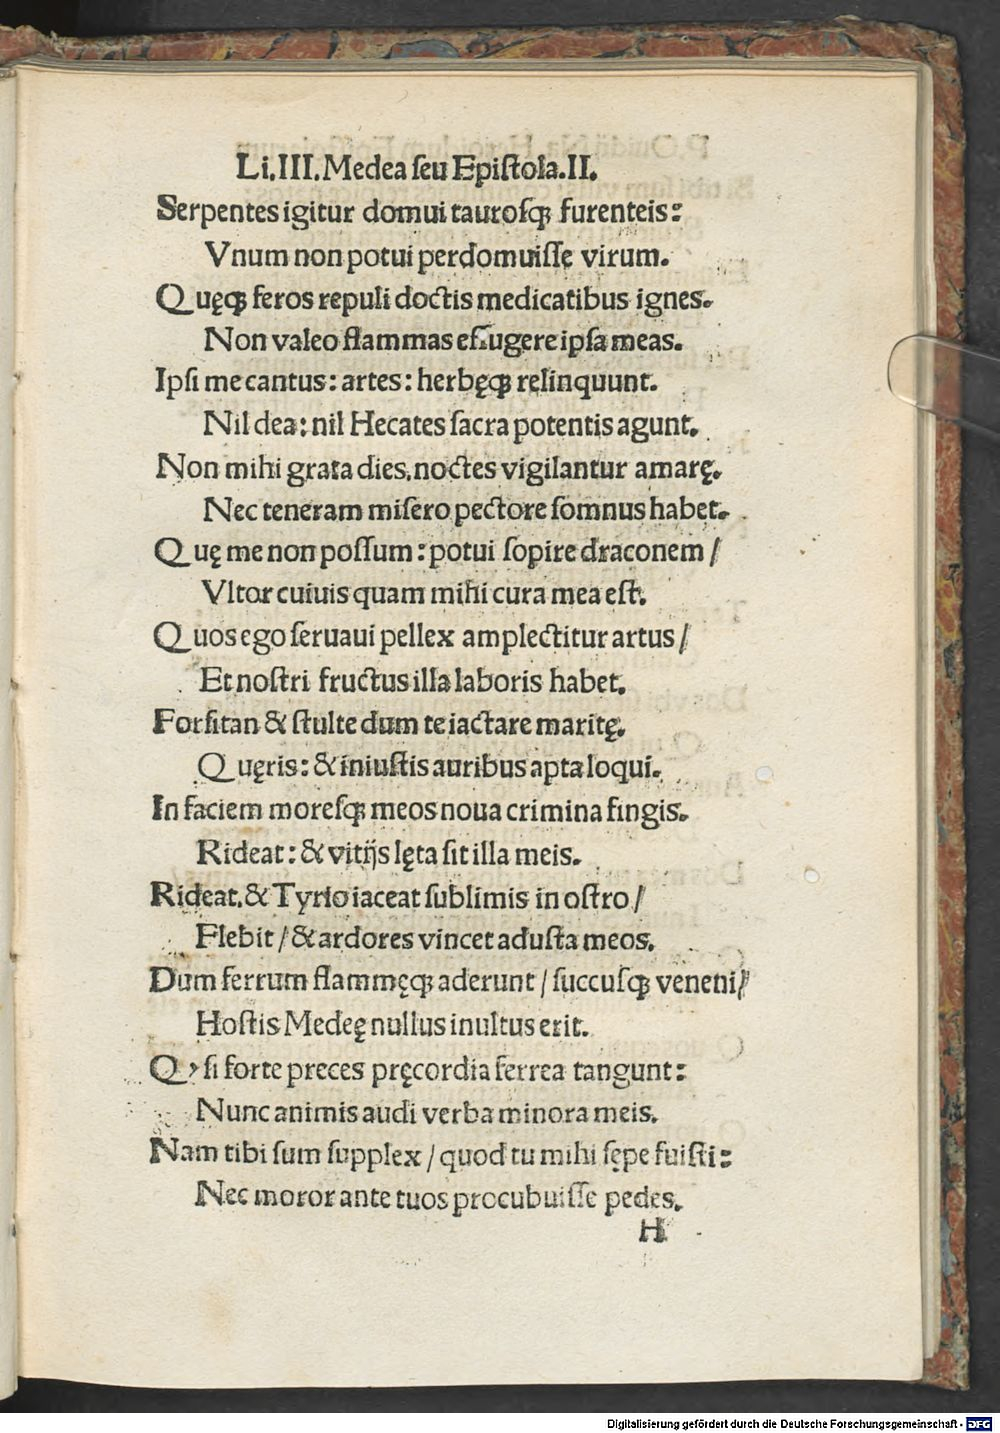 Li.III.Medea ſeu Epiſtola.II.
Serpentes igitur domui tauroſqꝫ furenteis:
Vnum non potui perdomuiſſe virum.
Quęqꝫ feros repuli doctis medicatibus ignes.
Non valeo flammas effugere ipſa meas.
Ipſi me cantus: artes: herbęqꝫ relinquunt.
Nil dea: nil Hecates ſacra potentis agunt.
Non mihi grata dies. noctes vigilantur amarę.
Nec teneram miſero pectore ſomnus habet.
Quę me non poſſum: potui ſopire draconem /
Vltor cuiuis quam mihi cura mea eſt.
Quos ego ſeruaui pellex amplectitur artus /
Et noſtri fructus illa laboris habet.
Forſitan & ſtulte dum te iactare maritę.
Quęris: & iniuſtis auribus apta loqui.
In faciem moreſqꝫ meos noua crimina fingis.
Rideat: & vitijs lęta ſit illa meis.
Rideat. & Tyrio iaceat ſublimis in oſtro /
Flebit / & ardores vincet aduſta meos.
Dum ferrum flammęqꝫ aderunt / ſuccuſqꝫ veneni /
Hoſtis Medeę nullus inultus erit.
Q› ſi forte preces pręcordia ferrea tangunt:
Nunc animis audi verba minora meis.
Nam tibi ſum ſupplex / quod tu mihi ſępe fuiſti:
Nec moror ante tuos procubuiſſe pedes.
H
Digitalisierung gefördert durch die Deutsche Forschungsgemeinschaft - DFG